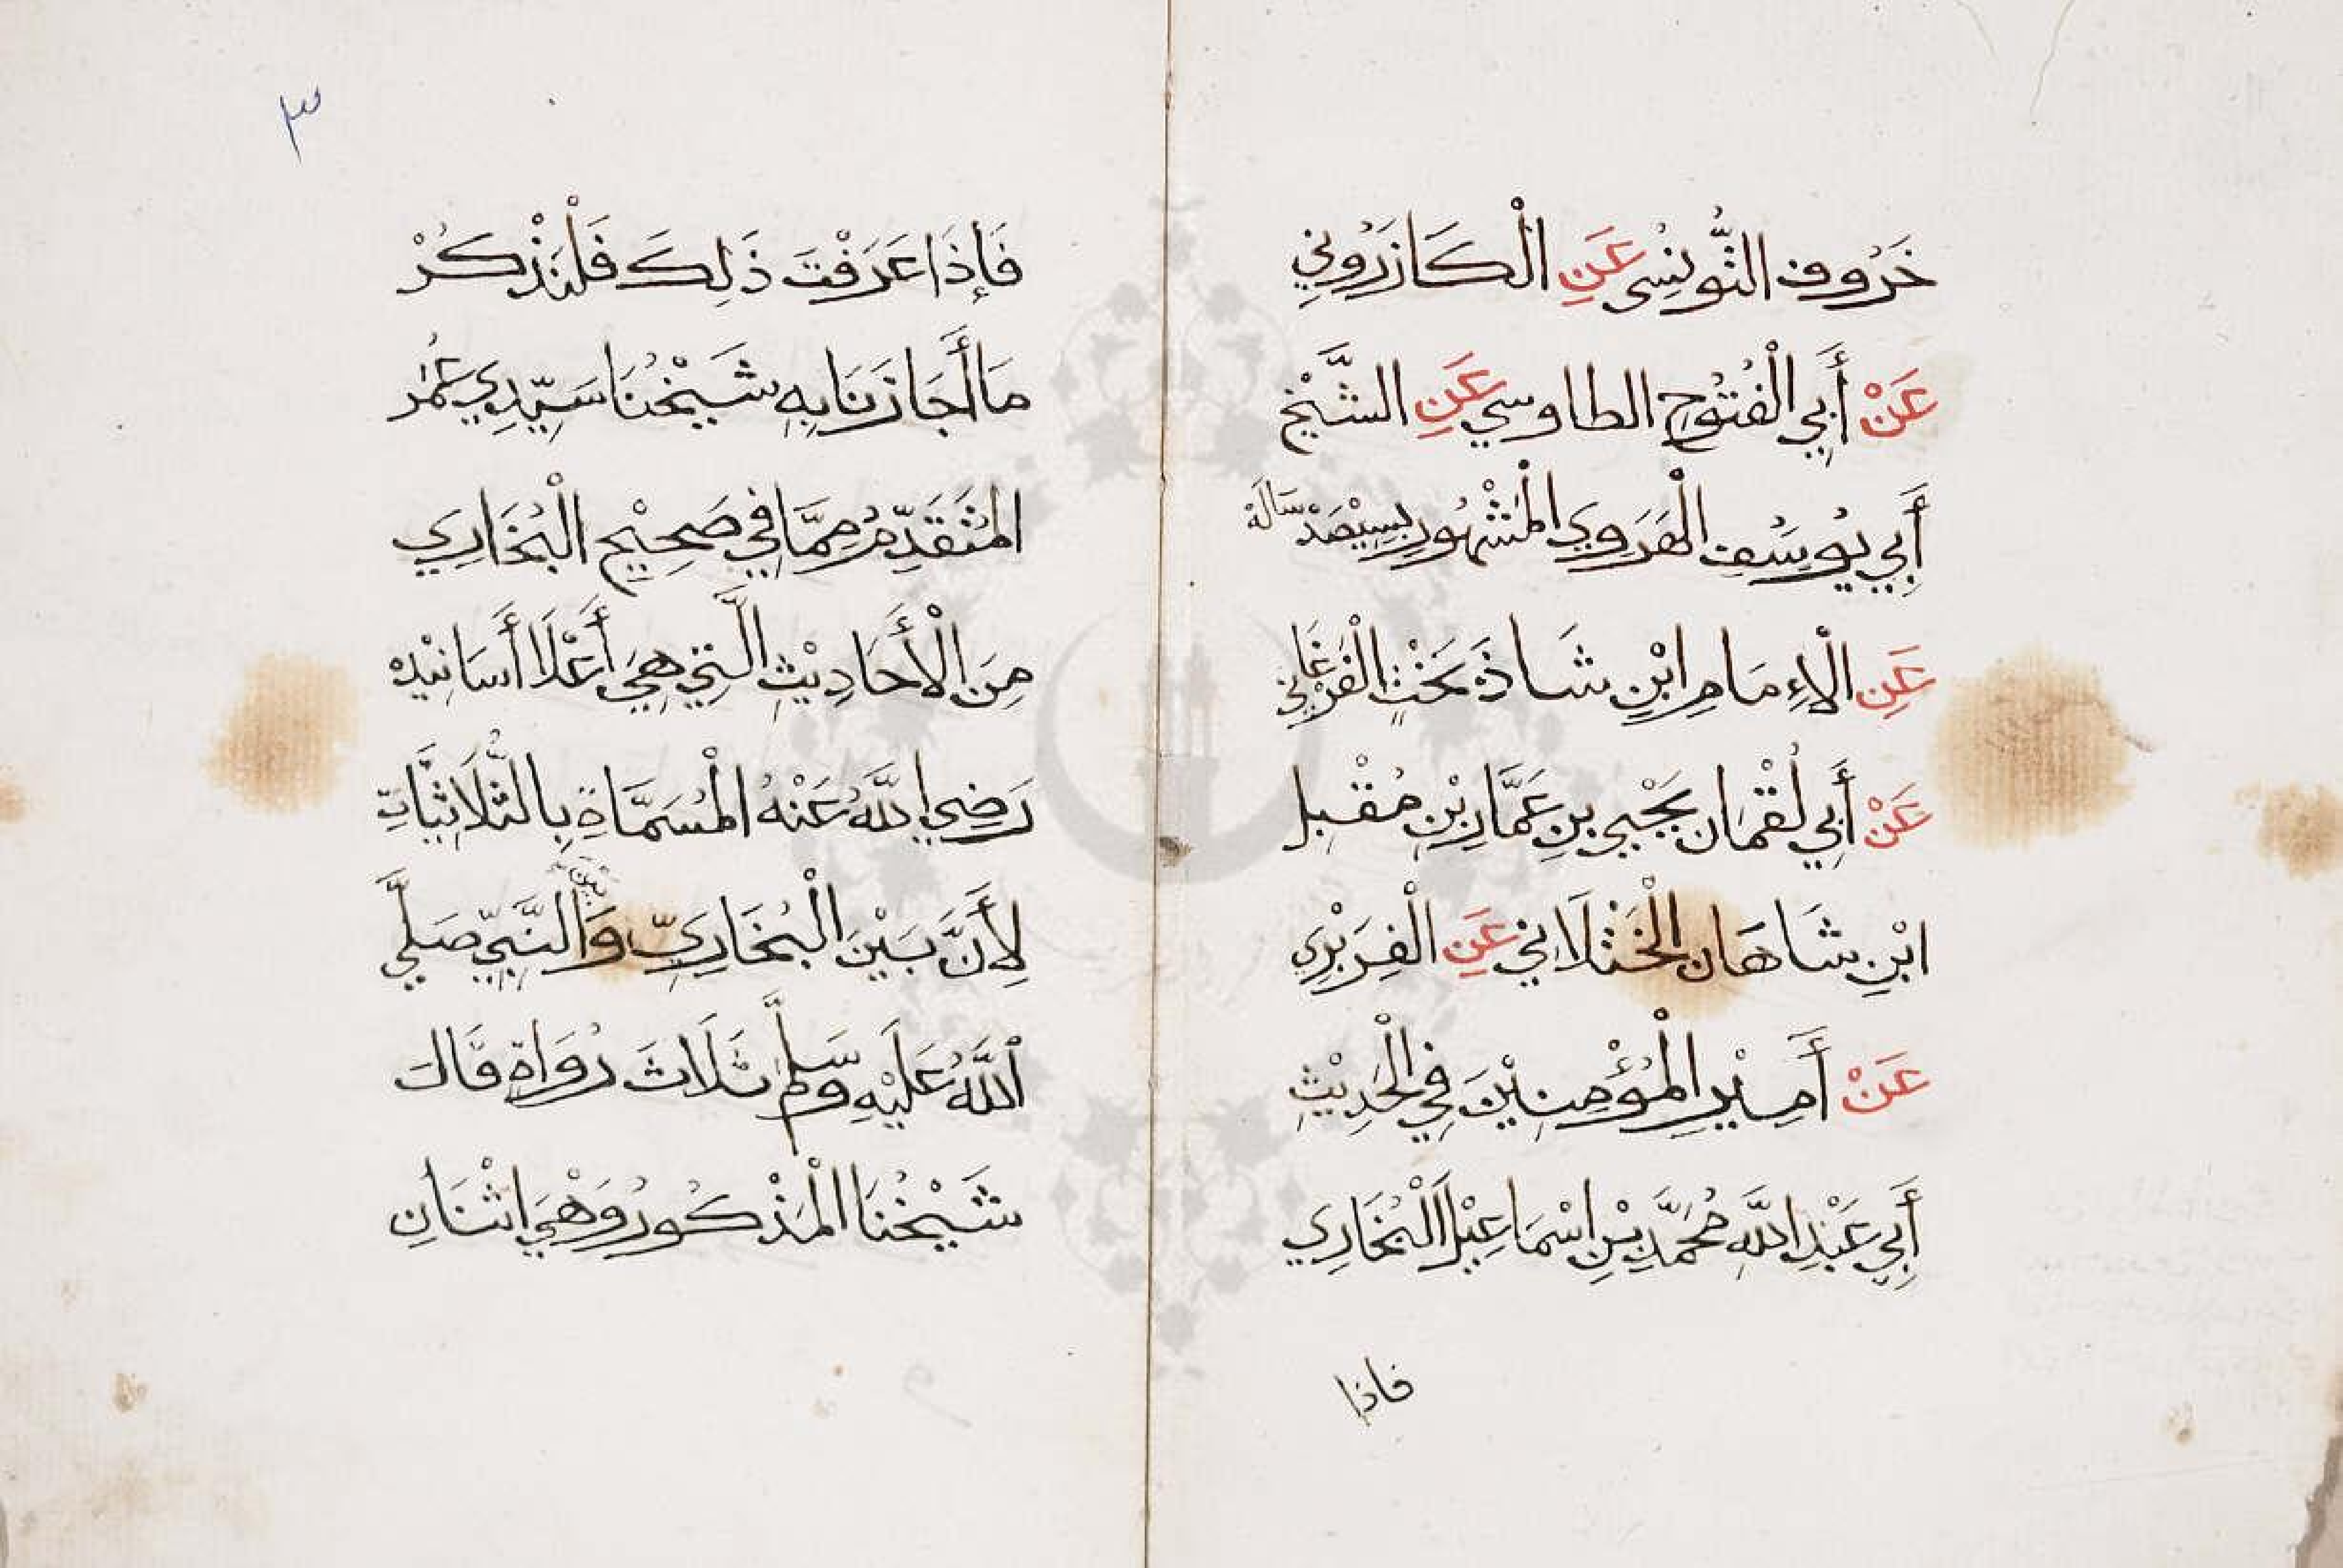 خَرُوف التُّونِسِي عَنِ الْكَازَرُونِي
عَنْ أَبِي الْفُتُوحِ الطاوسي عَنِ الشَّيْخِ
أَبِي يُوسُفِ الْهَرَوِي الْمَشْهُورِ بِسِيْصَدْ سَالَهْ
عَنِ الْإِمَامِ ابْنِ شَاذَ بَخْتٍ الْفَرْغَانِي
عَنْ أَبِي لُقْمَان يَحْيِي بنِ عَمَّارِ بْنِ مُقْبِل
ابْنِ شَاهَان الْخَتْلَانِي عَنِ الْفِرَبْرِي
عَنْ أَمِيْرِ الْمُؤْمِنِيْنَ فِي الْحَدِيْثِ
أَبِي عَبْدِ اللَّهِ مُحَمَّدِ بْنِ اسْمَاعِيْلَ الْبُخَارِي
فاذا
٣
فَإِذَا عَرَفْتَ ذَلِكَ فَلْنَذْكُرْ
مَا أَجَازَنَا بِهِ شَيْخُنَا سَيِّدِي عُمَر
الْمُتَقَدِّمُ مِمَّا فِي صَحِيْحِ الْبُخَارِي
مِنَ الْأَحَادِيْثِ الَّتِي هِيَ أَعْلَا أَسَانِيْدِهْ
رَضِيَ اللَّهُ عَنْهُ الْمُسَمَّاةِ بِالثُّلَاثِيَّاتِ
لِأَنَّ بَيْنَ الْبُخَارِيِّ وَبَيْنَ النَّبِيِّ صَلَّي
اللَّهُ عَلَيْهِ وَسَلَّم ثَلَاثَ رُوَاةٍ قَالَ
شَيْخُنَا الْمَذْكُورُ وَهْيَ اثْنَانِ